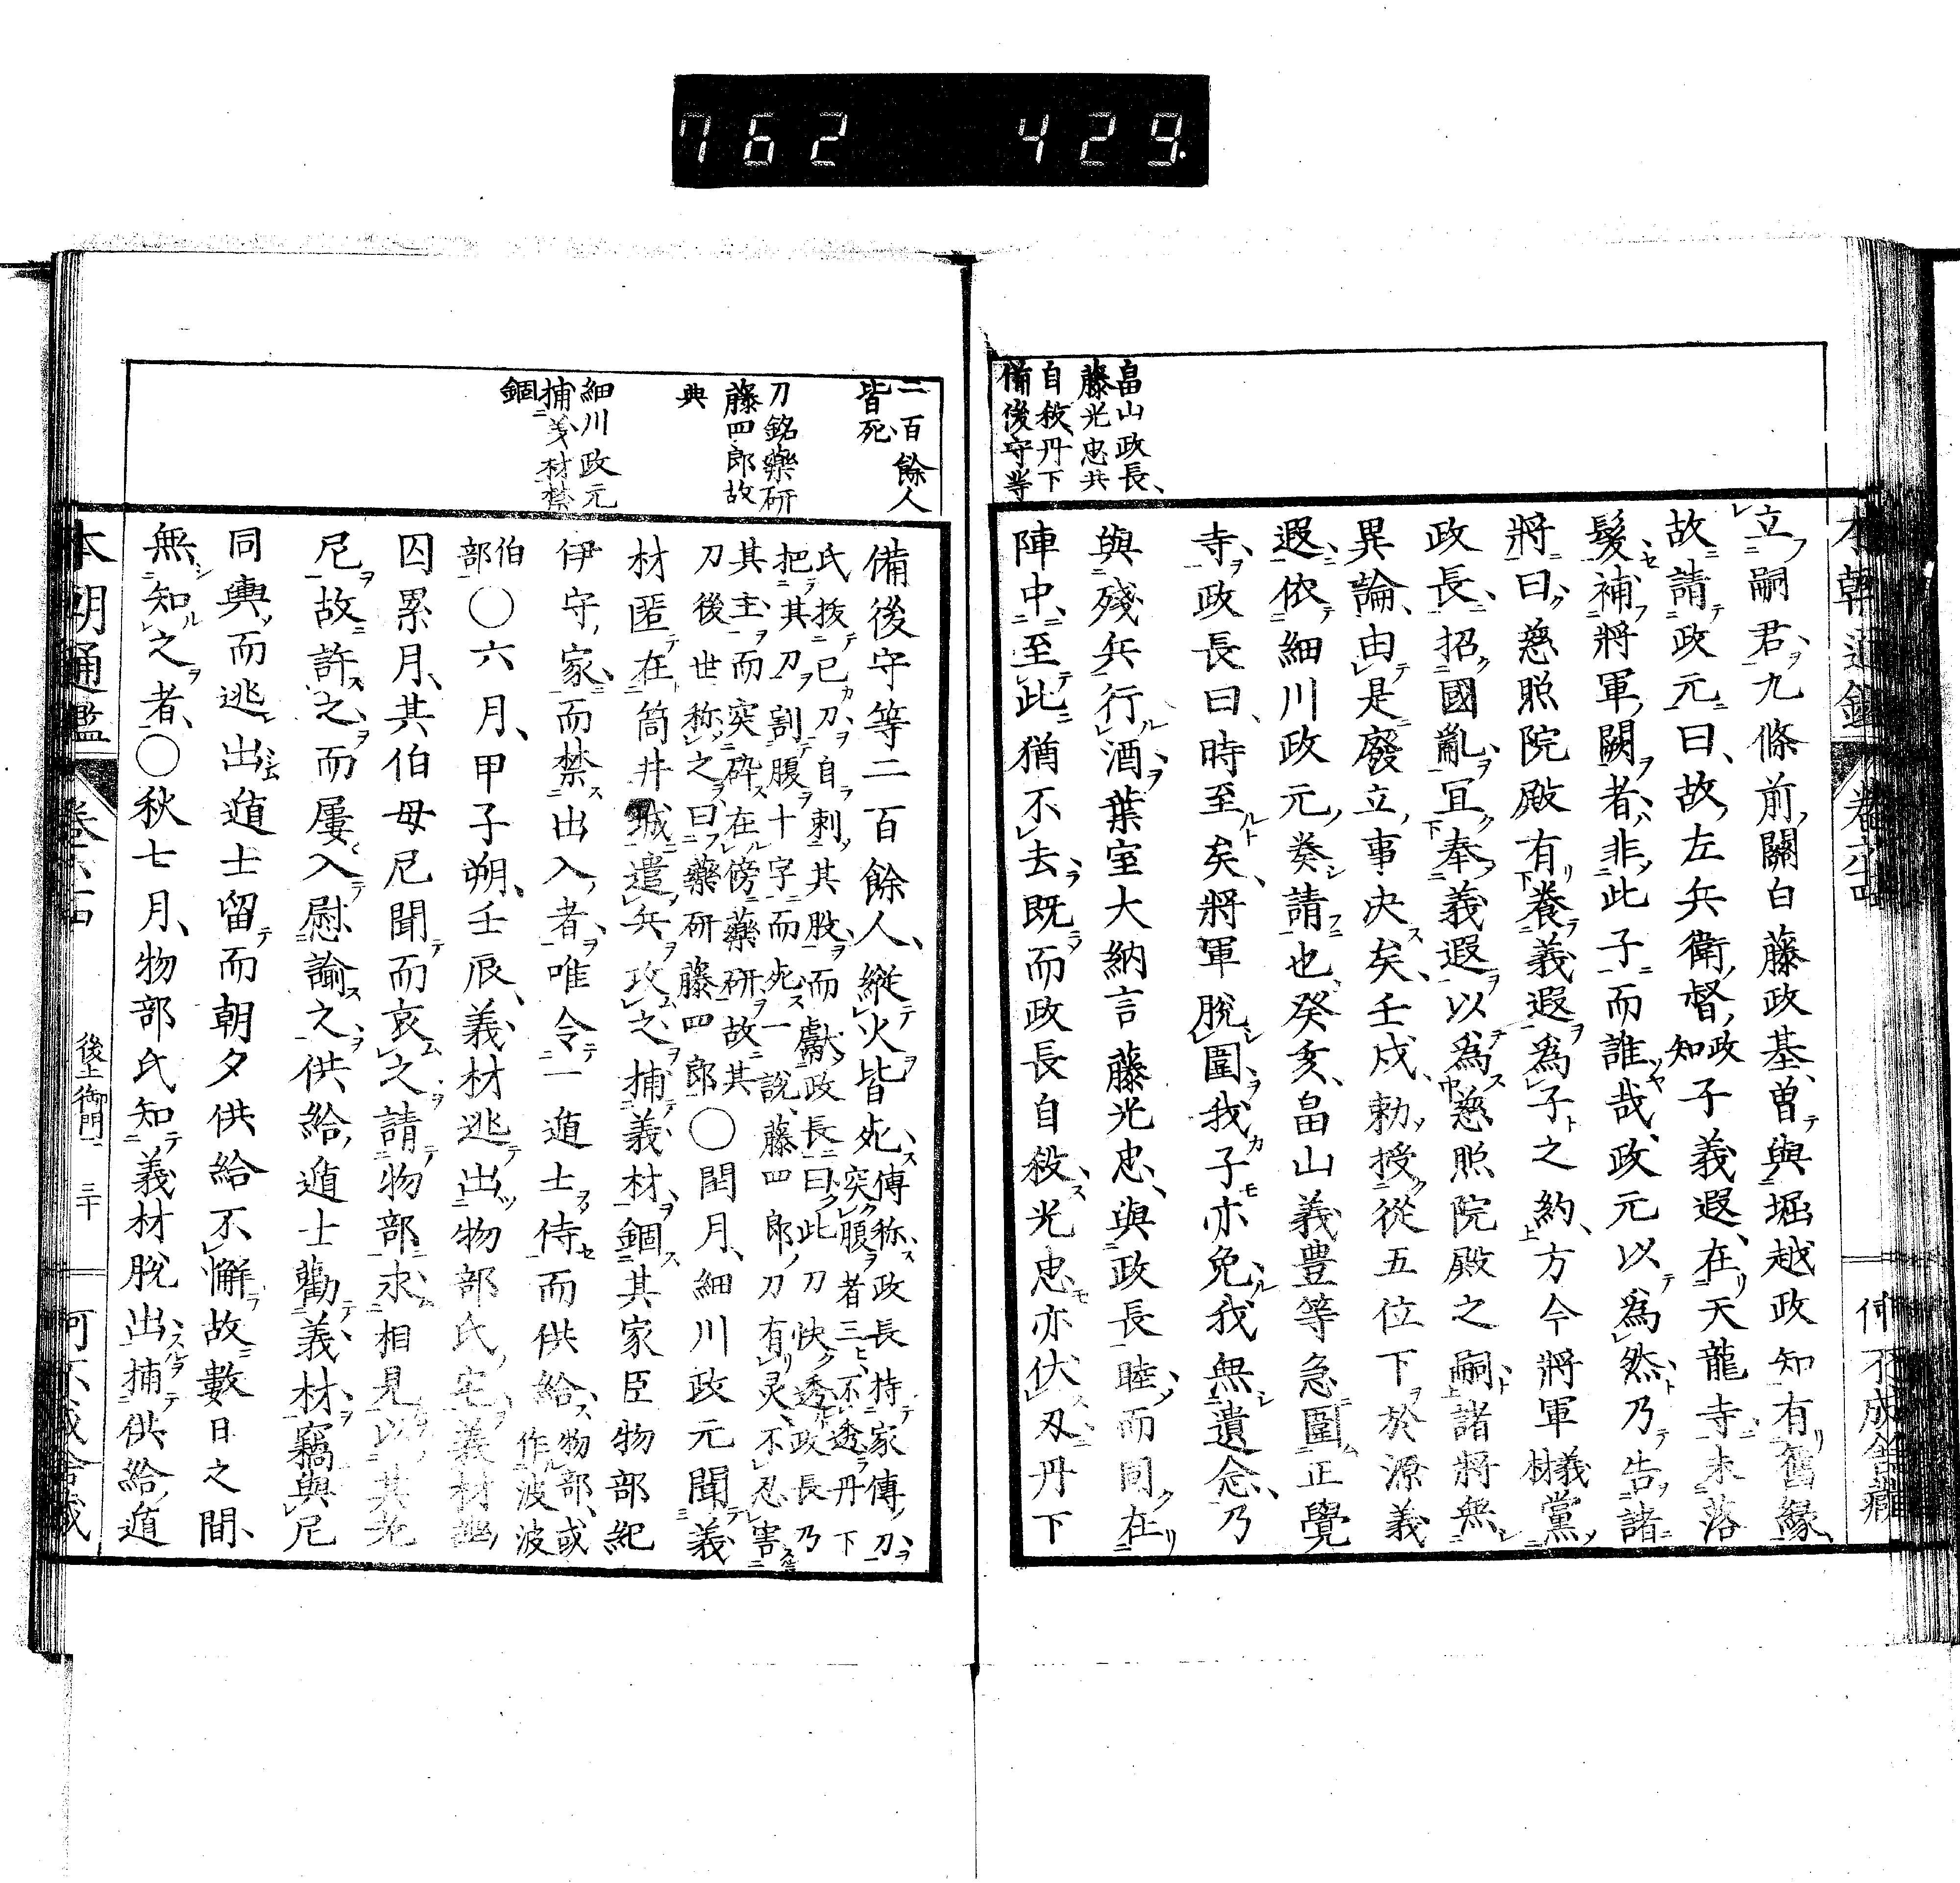 762 429.
畠山政長、
藤光忠共
自殺、丹下
備後守等
立嗣君、九條前關白藤政基、曽與堀越政知有舊緣、
故請政元曰、故左兵衛督政知子義遐、在天龍寺、未落
髪、補將軍闕者、非此子而誰哉、政元以爲然、乃告諸
將曰、慈照院殿有養義遐爲子之約、方今將軍義材黨
政長、招國亂、冝奉義遐以爲慈照院殿之嗣、諸將無
異論、由是廢立事決矣、壬戌、勅授從五位下於源義
遐、依細川政元奏請也、癸亥、畠山義豊等急圍正覺
寺、政長曰、時至矣、將軍脫圍我子亦免、我無遺念、乃
與殘兵行酒、葉室大納言藤光忠、與政長睦、而同在
陣中、至此猶不去、既而政長自殺、光忠亦伏刄、丹下
本朝通鑑 卷六十四 何不成舍藏
二百餘人
皆死、
刀銘藥研
藤四郎故
典
細川政元
捕義材禁
錮
備後守等二百餘人、縦火皆死、傳称政長持家傳刀、
氏抜已刀自刺其股、而獻政長曰、此刀快透、政長乃
突腹者三、不透、丹下
把其刀、割腹十字而死、一說、藤四郎刀有灵、不忍害
其主、而突碎在傍藥研、故其
刀後世称之、曰藥研藤四郎
○閏月、細川政元聞義
材匿在筒井城、遣兵攻之、捕義材、錮其家臣物部紀
伊守家、而禁出入者、唯令一遁士侍而供給、物部、或作波波
伯部
○六月、甲子朔、壬辰、義材逃出物部氏宅、義材
囚累月、其伯母尼聞而哀之、請物部求相見、以其
尼故許之、而屢入慰諭之供給、遁士勸義材、竊與尼
同輿而逃出、遁士留而朝夕供給不懈、故數日之間、
無知之者、○秋七月、物部氏知義材脫出、捕供給遁
本朝通鑑 卷六十四 後土御門 三十 何不成舍藏